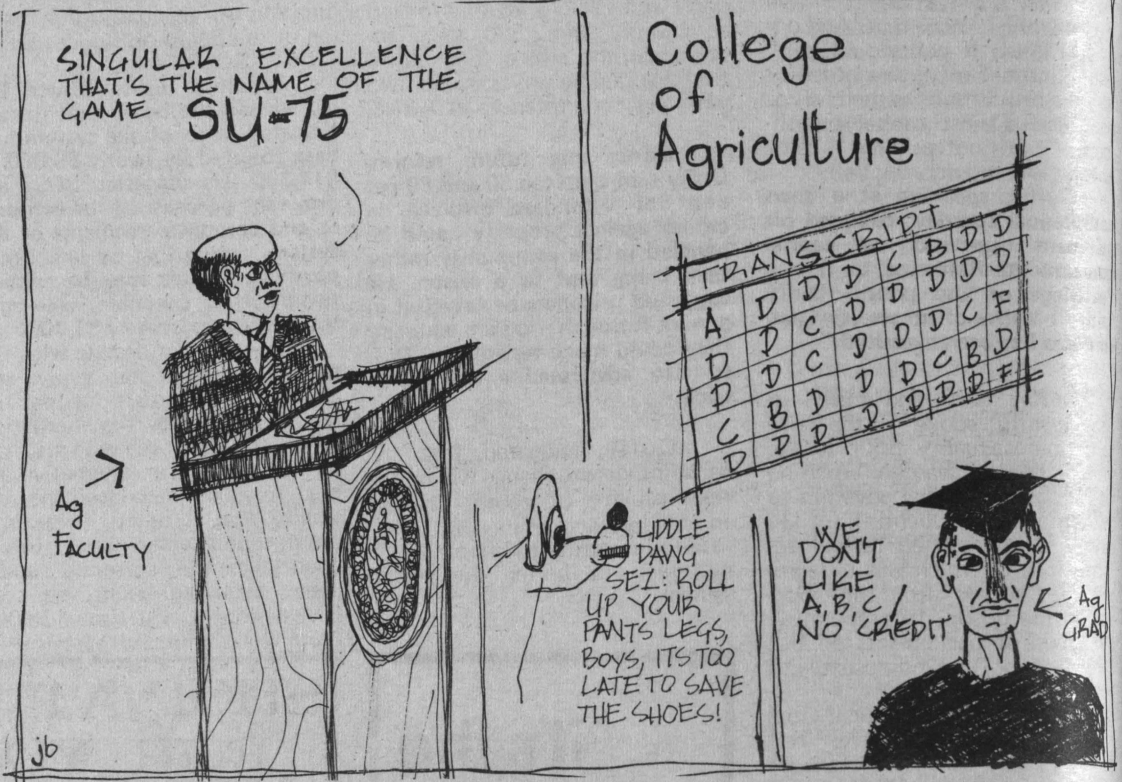 SINGULAR EXCELLENCE
THAT'S THE NAME OF THE
GAME SU-75
Ag
FACULTY
jb
College
of
Agriculture
TRANSCRIPT
A D D D C B D D
D D C D D D D D
D D C D D D C F
C B D D D C B D
D D D D D D D F
LIDDLE
DAWG
SEZ: ROLL
UP YOUR
PANTS LEGS,
BOYS, ITS TOO
LATE TO SAVE
THE SHOES!
WE
DON'T
LIKE
A, B, C,
NO CREDIT
Ag
GRAD